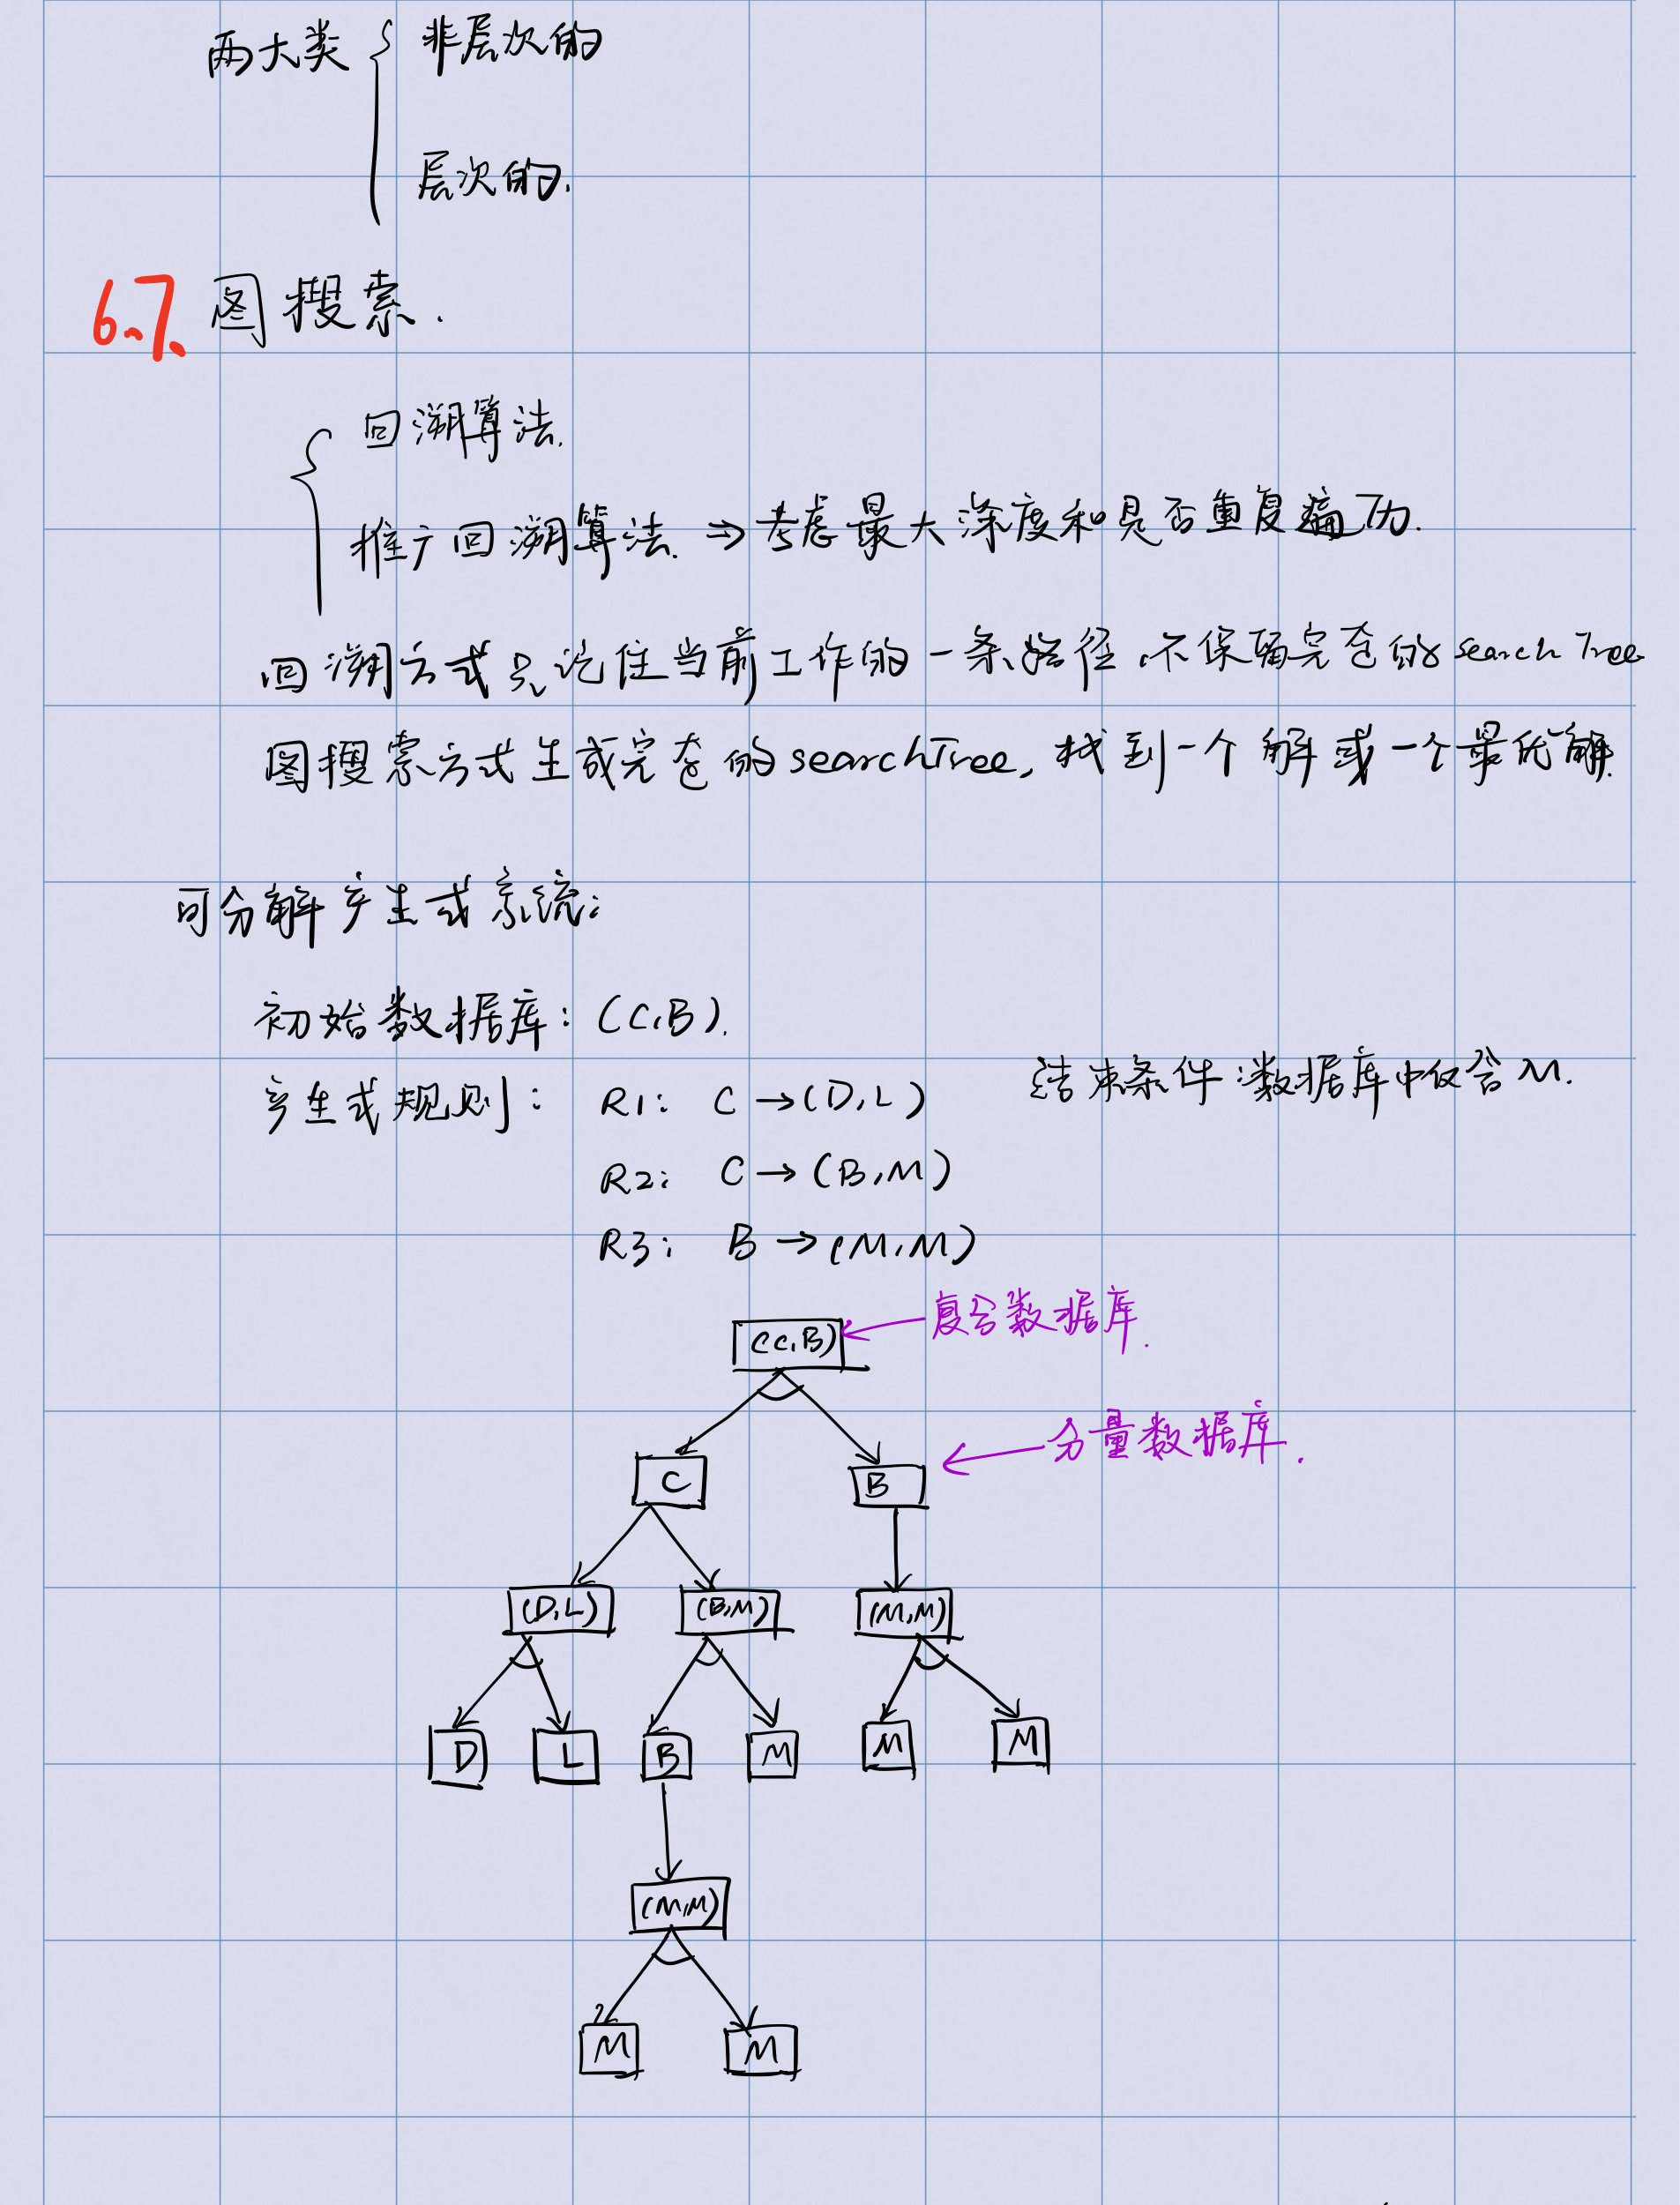 两大类 { 非层次的
层次的.
6.7. 图搜索.
回溯算法.
推广回溯算法. ⇒ 考虑最大深度和是否重复遍历.
回溯方式只记住当前工作的一条路径,不保留完整的search Tree
图搜索方式生成完整的searchTree, 找到一个解或一个最优解.
可分解产生式系统:
初始数据库: (C,B).
产生式规则: R1: C→(D,L) 结束条件:数据库中仅含M.
R2: C→(B,M)
R3: B→(M,M)
(C,B) ← 复合数据库.
C B ← 分量数据库.
(D,L) (B,M) (M,M)
D L B M M M
(M,M)
M M